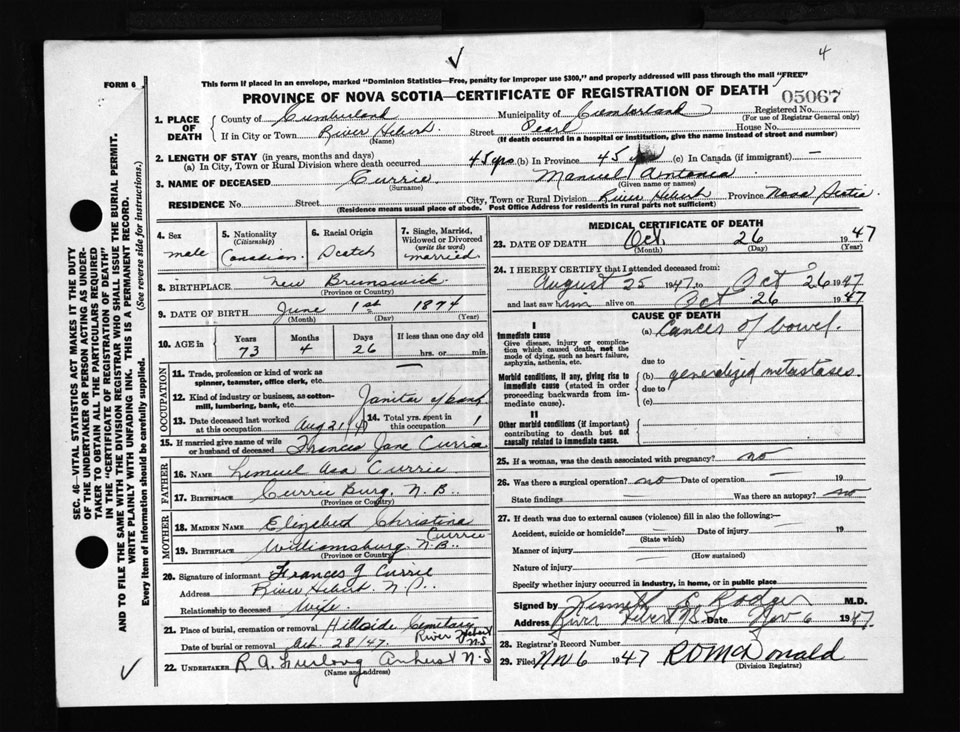 4
FORM 6
This form if placed in an envelope, marked "Dominion Statistics—Free, penalty for improper use $300," and properly addressed will pass through the mail "FREE"
PROVINCE OF NOVA SCOTIA—CERTIFICATE OF REGISTRATION OF DEATH
05067
SEC. 46—VITAL STATISTICS ACT MAKES IT THE DUTY
OF THE UNDERTAKER OR PERSON ACTING AS UNDER-
TAKER TO OBTAIN ALL THE PARTICULARS REQUIRED
IN THE "CERTIFICATE OF REGISTRATION OF DEATH"
AND TO FILE THE SAME WITH THE DIVISION REGISTRAR WHO SHALL ISSUE THE BURIAL PERMIT.
WRITE PLAINLY WITH UNFADING INK. THIS IS A PERMANENT RECORD.
Every item of information should be carefully supplied. (See reverse side for instructions.)
1. PLACE OF DEATH
County of Cumberland Municipality of Cumberland Registered No.
(For use of Registrar General only)
If in City or Town River Hebert Street Pearl House No.
(Name) (If death occurred in a hospital or institution, give the name instead of street and number)
2. LENGTH OF STAY (in years, months and days)
(a) In City, Town or Rural Division where death occurred 45 yrs (b) In Province 45 yrs (c) In Canada (if immigrant) —
3. NAME OF DECEASED Currie Manuel
(Surname) (Given name or names)
RESIDENCE No. Street City, Town or Rural Division River Hebert Province Nova Scotia
(Residence means usual place of abode. Post Office Address for residents in rural parts not sufficient)
4. Sex
male
5. Nationality
(Citizenship)
Canadian
6. Racial Origin
Scotch
7. Single, Married, Widowed or Divorced
(write the word)
married
8. BIRTHPLACE New Brunswick
(Province or Country)
9. DATE OF BIRTH June 1st 1874
(Month) (Day) (Year)
10. AGE in
Years Months Days If less than one day old
73 4 26 hrs. or min.
OCCUPATION
11. Trade, profession or kind of work as
spinner, teamster, office clerk, etc.
12. Kind of industry or business, as cotton-
mill, lumbering, bank, etc. Janitor of bank
13. Date deceased last worked
at this occupation Aug 21
14. Total yrs. spent in
this occupation 1
15. If married give name of wife
or husband of deceased Frances Jane Currie
FATHER
16. NAME Lemuel Asa Currie
17. BIRTHPLACE Currie Burg. N.B.
(Province or Country)
MOTHER
18. MAIDEN NAME Elizabeth Christina
Currie
19. BIRTHPLACE Williamsburg. N.B.
(Province or Country)
20. Signature of informant Frances J Currie
Address River Hebert. N.S.
Relationship to deceased Wife.
21. Place of burial, cremation or removal Hillside Cemetary
River Hebert N.S
Date of burial or removal Oct. 28/47.
22. UNDERTAKER R. A. Furlong Amherst N.S
(Name and address)
MEDICAL CERTIFICATE OF DEATH
23. DATE OF DEATH Oct 26 1947
(Month) (Day) (Year)
24. I HEREBY CERTIFY that I attended deceased from:
August 25 1947 to Oct 26 1947
and last saw him alive on Oct 26 1947
CAUSE OF DEATH
I
Immediate cause
Give disease, injury or complica-
tion which caused death, not the
mode of dying, such as heart failure,
asphyxia, asthenia, etc.
(a) Cancer of bowel.
due to
Morbid conditions, if any, giving rise to
immediate cause (stated in order
proceeding backwards from im-
mediate cause).
(b) generalized metastases.
due to
(c)
II
Other morbid conditions (if important)
contributing to death but not
causally related to immediate cause.
25. If a woman, was the death associated with pregnancy? no
26. Was there a surgical operation? no Date of operation 19
State findings Was there an autopsy? no
27. If death was due to external causes (violence) fill in also the following:—
Accident, suicide or homicide? Date of injury 19
(State which)
Manner of injury
(How sustained)
Nature of injury
Specify whether injury occurred in industry, in home, or in public place
Signed by Kenneth E Rodger M.D.
Address River Hebert NS Date Nov 6 1947.
28. Registrar's Record Number
29. Filed Nov 6 1947 R D McDonald
(Division Registrar)